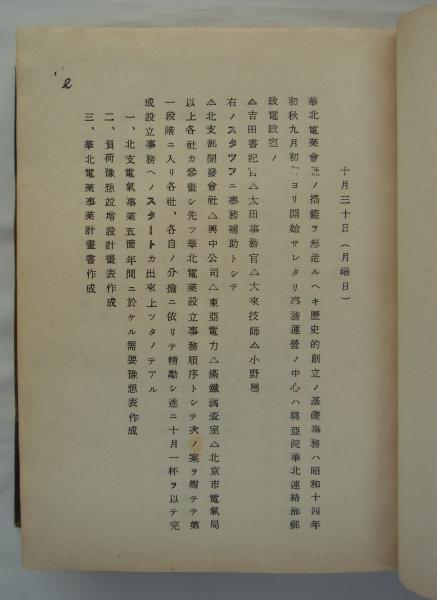 十月三十日(月曜日)
華北電業會社ノ搖籃ヲ形造ルヘキ歴史的創立ノ基礎事務ハ昭和十四年
初秋九月初旬ヨリ開始サレタリ事務運營ノ中心ハ興亞院華北連絡部郵
政電政室ノ
△吉田書記官△太田事務官△大來技師△小野属
右ノスタツフニ事務補助トシテ
△北支那開發會社△興中公司△東亞電力△滿鐵調査室△北京市電氣局
以上各社カ參畫シ先ツ華北電業設立事務順序トシテ次ノ案ヲ樹テテ第
一段階ニ入リ各社、各自ノ分擔ニ依リテ精勵シ遂ニ十月一杯ヲ以テ完
成設立事務ヘノスタートカ出來上ツタノテアル
一、北支電氣事業五箇年間ニ於ケル需要豫想表作成
二、負荷豫想並增設計畫表作成
三、華北電業事業計畫書作成
2